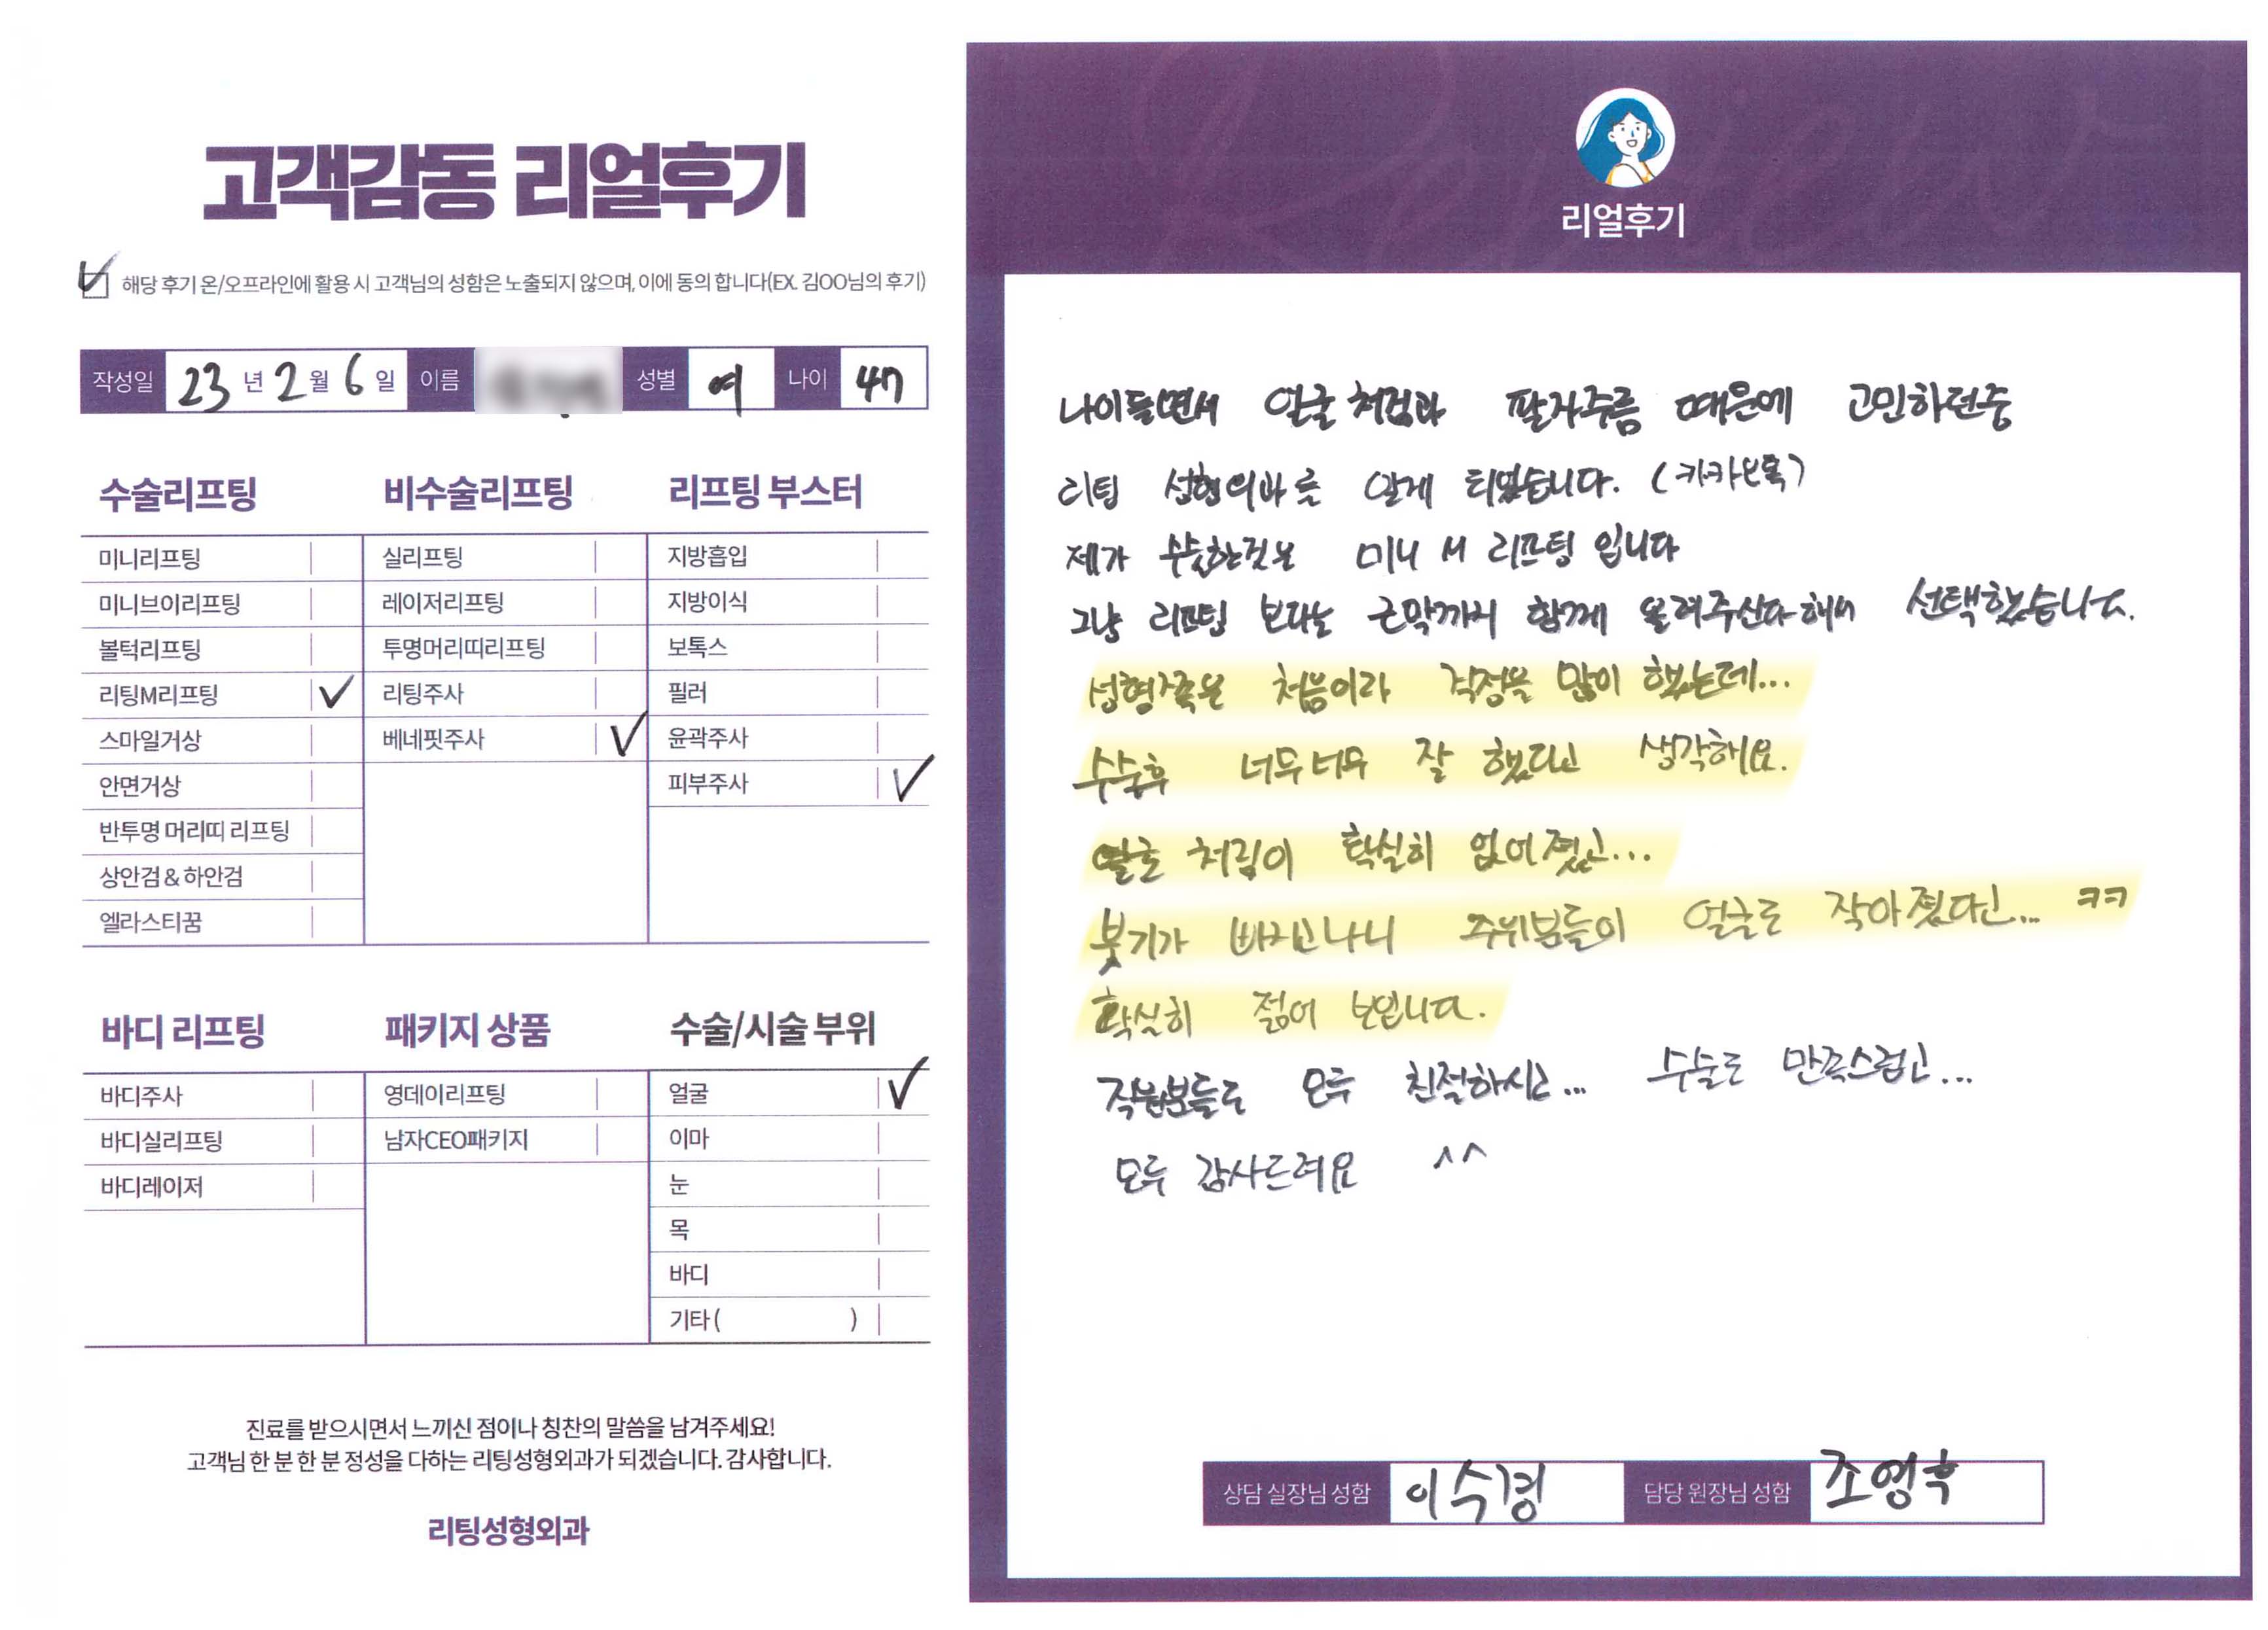 고객감동 리얼후기
해당 후기 온/오프라인에 활용 시 고객님의 성함은 노출되지 않으며, 이에 동의 합니다(EX. 김OO님의 후기)
작성일 23 년 2 월 6 일 이름 성별 여 나이 47
수술리프팅
미니리프팅
미니브이리프팅
볼턱리프팅
리팅M리프팅
스마일거상
안면거상
반투명 머리띠 리프팅
상안검 & 하안검
엘라스티꿈
비수술리프팅
실리프팅
레이저리프팅
투명머리띠리프팅
리팅주사
베네핏주사
리프팅 부스터
지방흡입
지방이식
보톡스
필러
윤곽주사
피부주사
바디 리프팅
바디주사
바디실리프팅
바디레이저
패키지 상품
영데이리프팅
남자CEO패키지
수술/시술 부위
얼굴
이마
눈
목
바디
기타 ( )
진료를 받으시면서 느끼신 점이나 칭찬의 말씀을 남겨주세요!
고객님 한 분 한 분 정성을 다하는 리팅성형외과가 되겠습니다. 감사합니다.
리팅성형외과
리얼후기
나이들면서 얼굴 처짐과 팔자주름 때문에 고민하던중
리팅 성형외과를 알게 되었습니다. (카카오톡)
제가 수술한것은 미니 M 리프팅 입니다
그냥 리프팅 보다는 근막까지 함께 올려주신다해서 선택했습니다.
성형쪽은 처음이라 걱정을 많이 했는데...
수술후 너무너무 잘 했다고 생각해요.
얼굴 처짐이 확실히 없어졌고...
붓기가 빠지고나니 주위분들이 얼굴도 작아졌다고... ㅋㅋ
확실히 젊어 보입니다.
직원분들도 모두 친절하시고... 수술도 만족스럽고...
모두 감사드려요 ^^
상담 실장님 성함 이수경 담당 원장님 성함